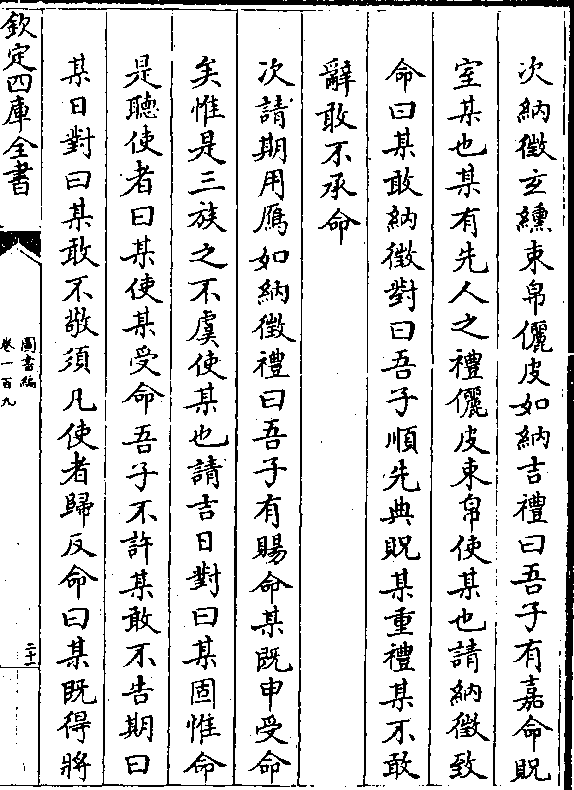 次納徵玄纁束帛儷皮如納吉禮曰吾子有嘉命貺
室某也某有先人之禮儷皮束帛使某也請納徵致
命曰某敢納徵對曰吾子順先典貺某重禮某不敢
辭敢不承命
次請期用鴈如納徵禮曰吾子有賜命某既申受命
矣惟是三族之不虞使某也請吉日對曰某固惟命
是聽使者曰某使某受命吾子不許某敢不告期曰
某日對曰某敢不敬須凡使者歸反命曰某既得將
欽定四庫全書
圖書編
卷一百九
二十一